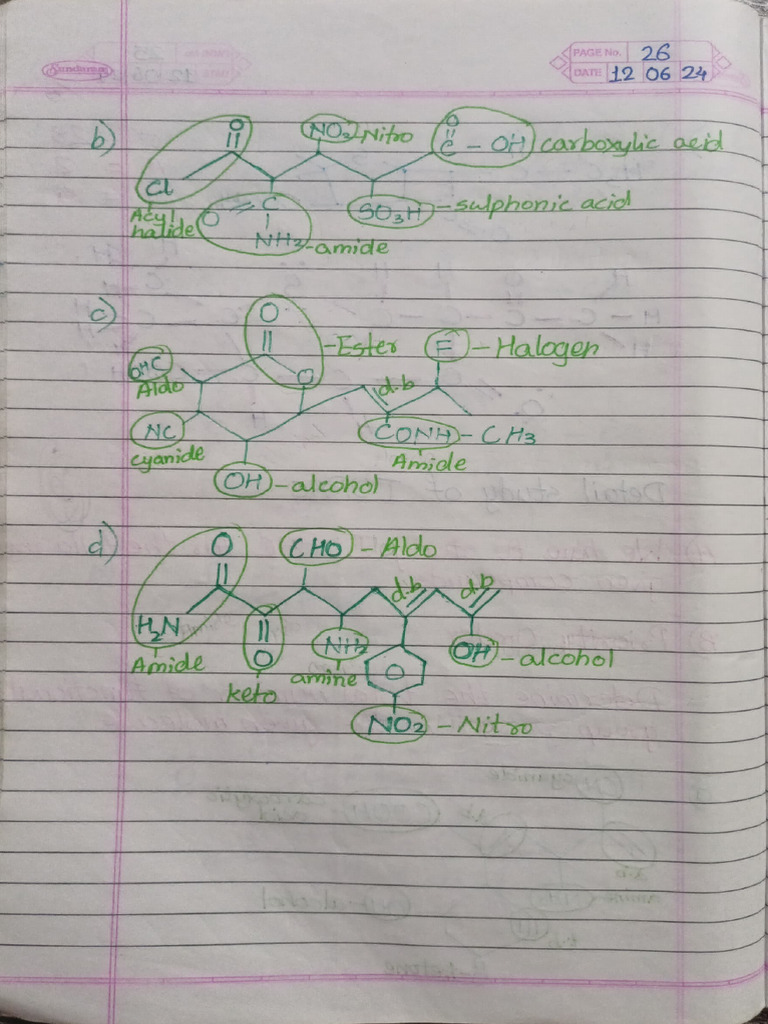 Sundaram
PAGE No. 26
DATE 12 06 24
b) O NO2 - Nitro O C - OH carboxylic acid
Cl O C SO3H - sulphonic acid
Acyl halide
NH2 - amide
c) O
- Ester F - Halogen
OHC O d.b
Aldo
NC CONH - CH3
cyanide Amide
OH - alcohol
d) O CHO - Aldo
d.b d.b
H2N NH2 OH - alcohol
Amide O amine
keto
NO2 - Nitro